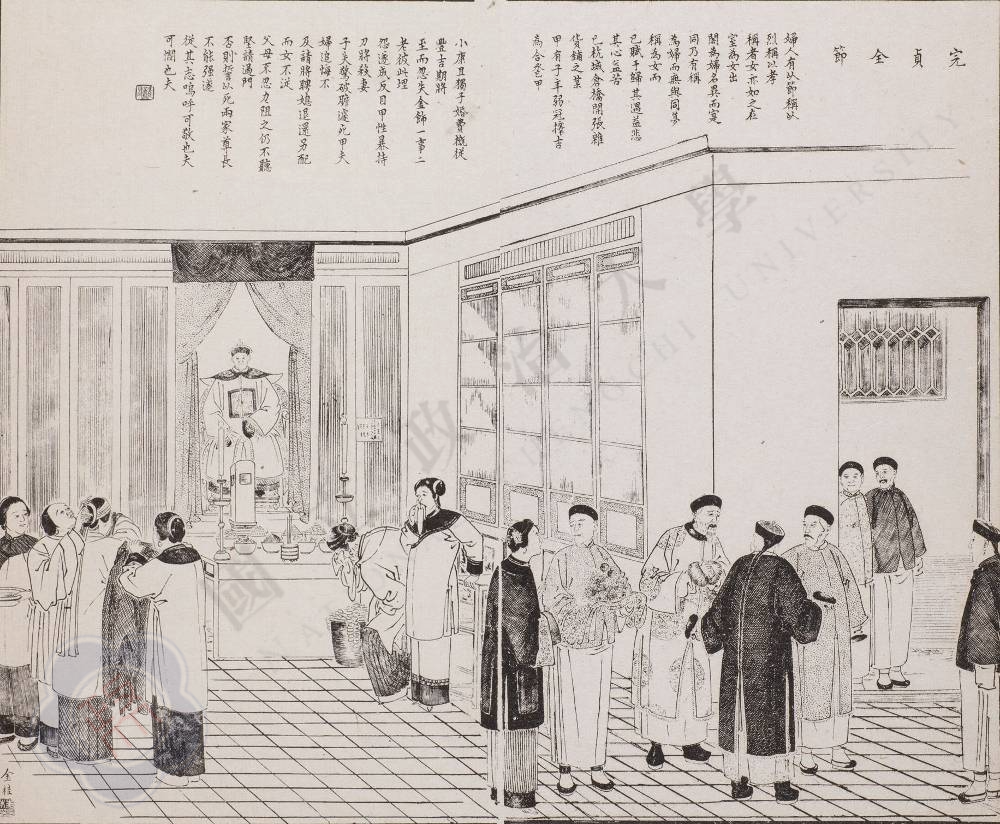 完貞全節
婦人有以節稱以
烈稱以孝
稱者女亦如之在
室為女出
閣為婦名異而實
同乃有稱
為婦而無與同夢
稱為女而
已賦于歸其遇益悲
其心益苦
已杭城倉橋開張雜
貨鋪之葉
甲有子年弱冠擇吉
為合巹甲
小康且獨子婚費概從
豐吉期將
至而忽失金飾一事二
老彼此埋
怨遂成反目甲性暴持
刀將殺妻
子失驚破膽遽死甲夫
婦追悔不
及請將聘媳退還另配
而女不從
父母不忍力阻之仍不聽
堅請過門
否則誓以死兩家尊長
不能強遂
從其志嗚呼可敬也夫
可憫也夫
金桂
國 政治大學
UNIVERSITY